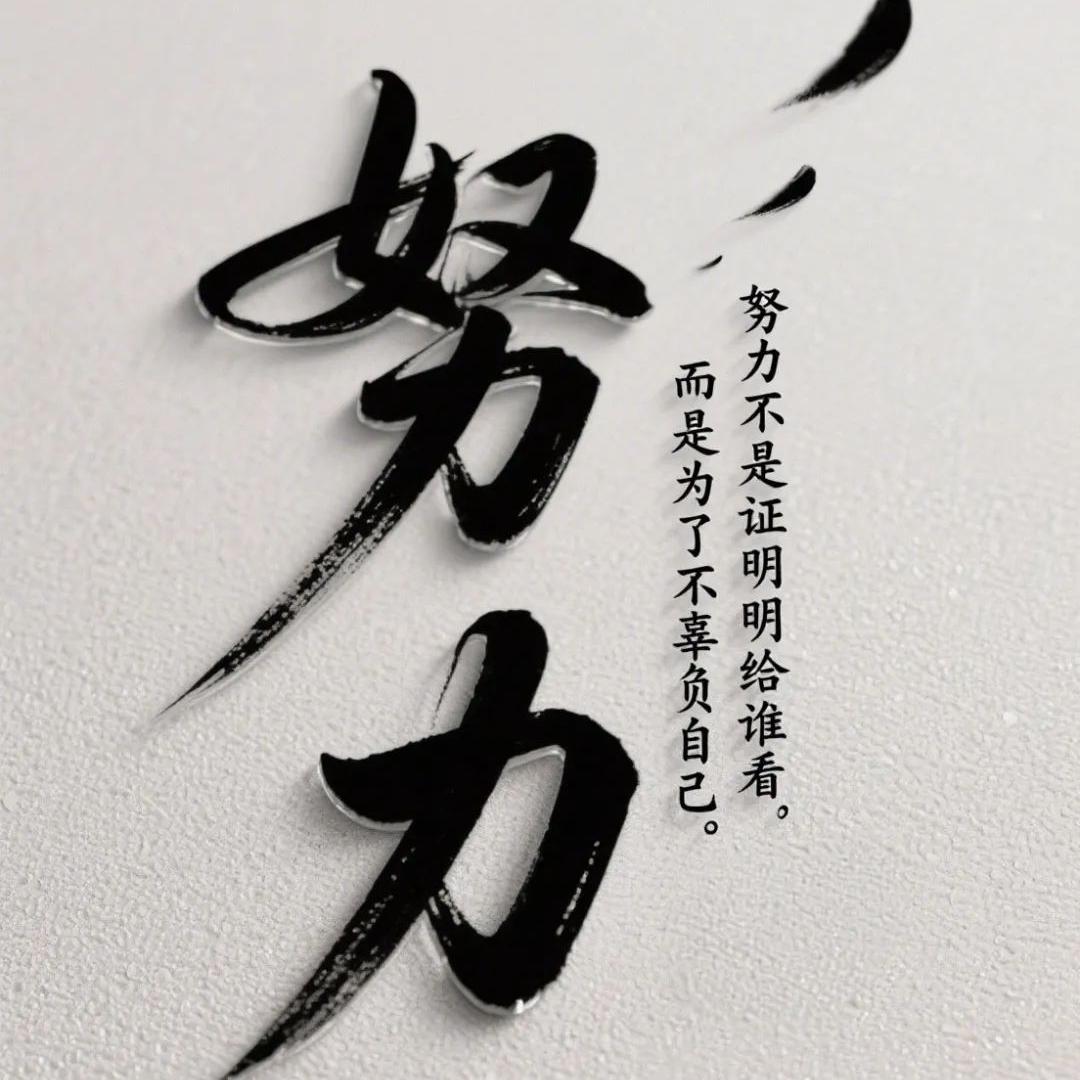 努力
努力不是证明明给谁看。
而是为了不辜负自己。